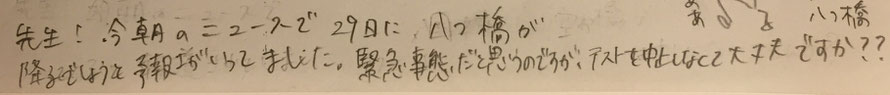 先生!今朝のニュースで29日に八つ橋が
降るでしょうと予報士がいってました。緊急事態だと思うのですが、テストを中止しなくて大丈夫ですか??
八つ橋